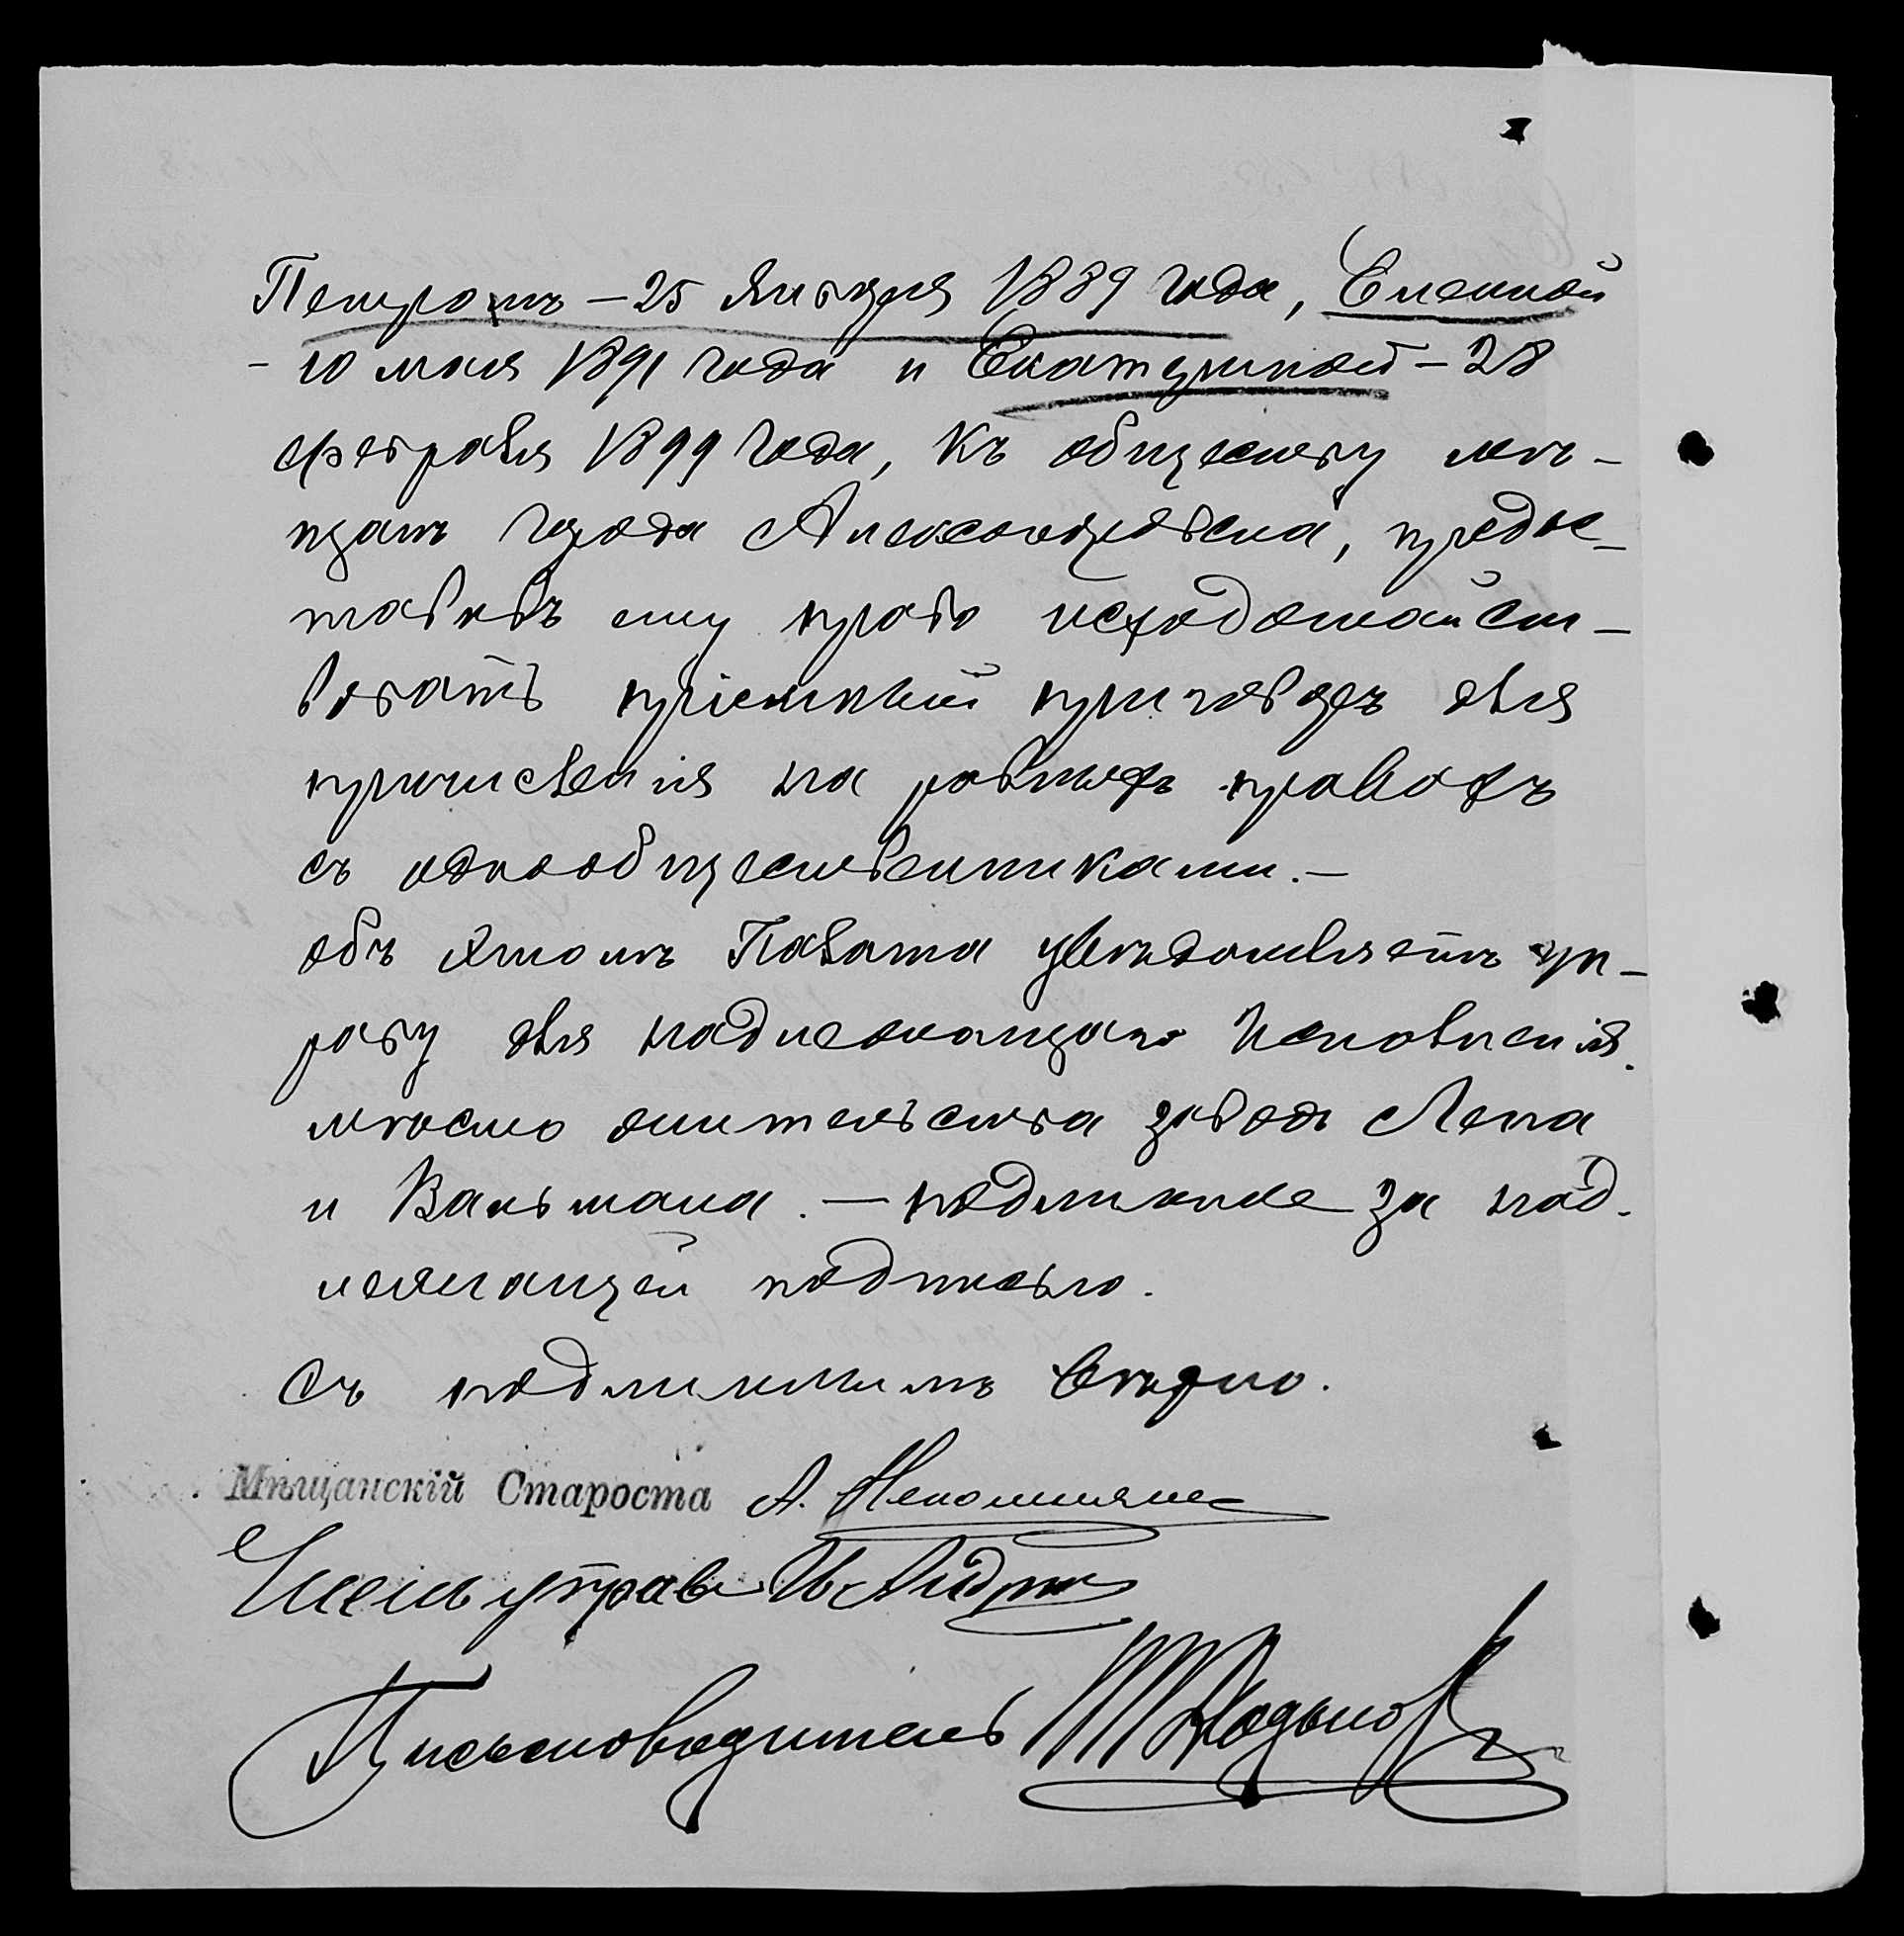 Петромъ – 25 Января 1889 года, Еленной
– 10 мая 1891 года и Екатериной – 28
февраля 1899 года, къ обществу мѣ–
щанъ города Александровска, предос–
тавивъ ему право исходатайст–
вовать пріемный приговоръ для
причисленія на равныхъ правахъ
съ однообщественниками. –
объ этомъ Палата увѣдомляетъ уп–
раву для надлежащаго исполненія.
мѣсто жительства заводъ Лепа
и Вальмана. – подлинное за над.
лежащей подписью.
Съ подлиннымъ вѣрно.
Мѣщанскій Староста А.
Членъ управы
Письмоводитель